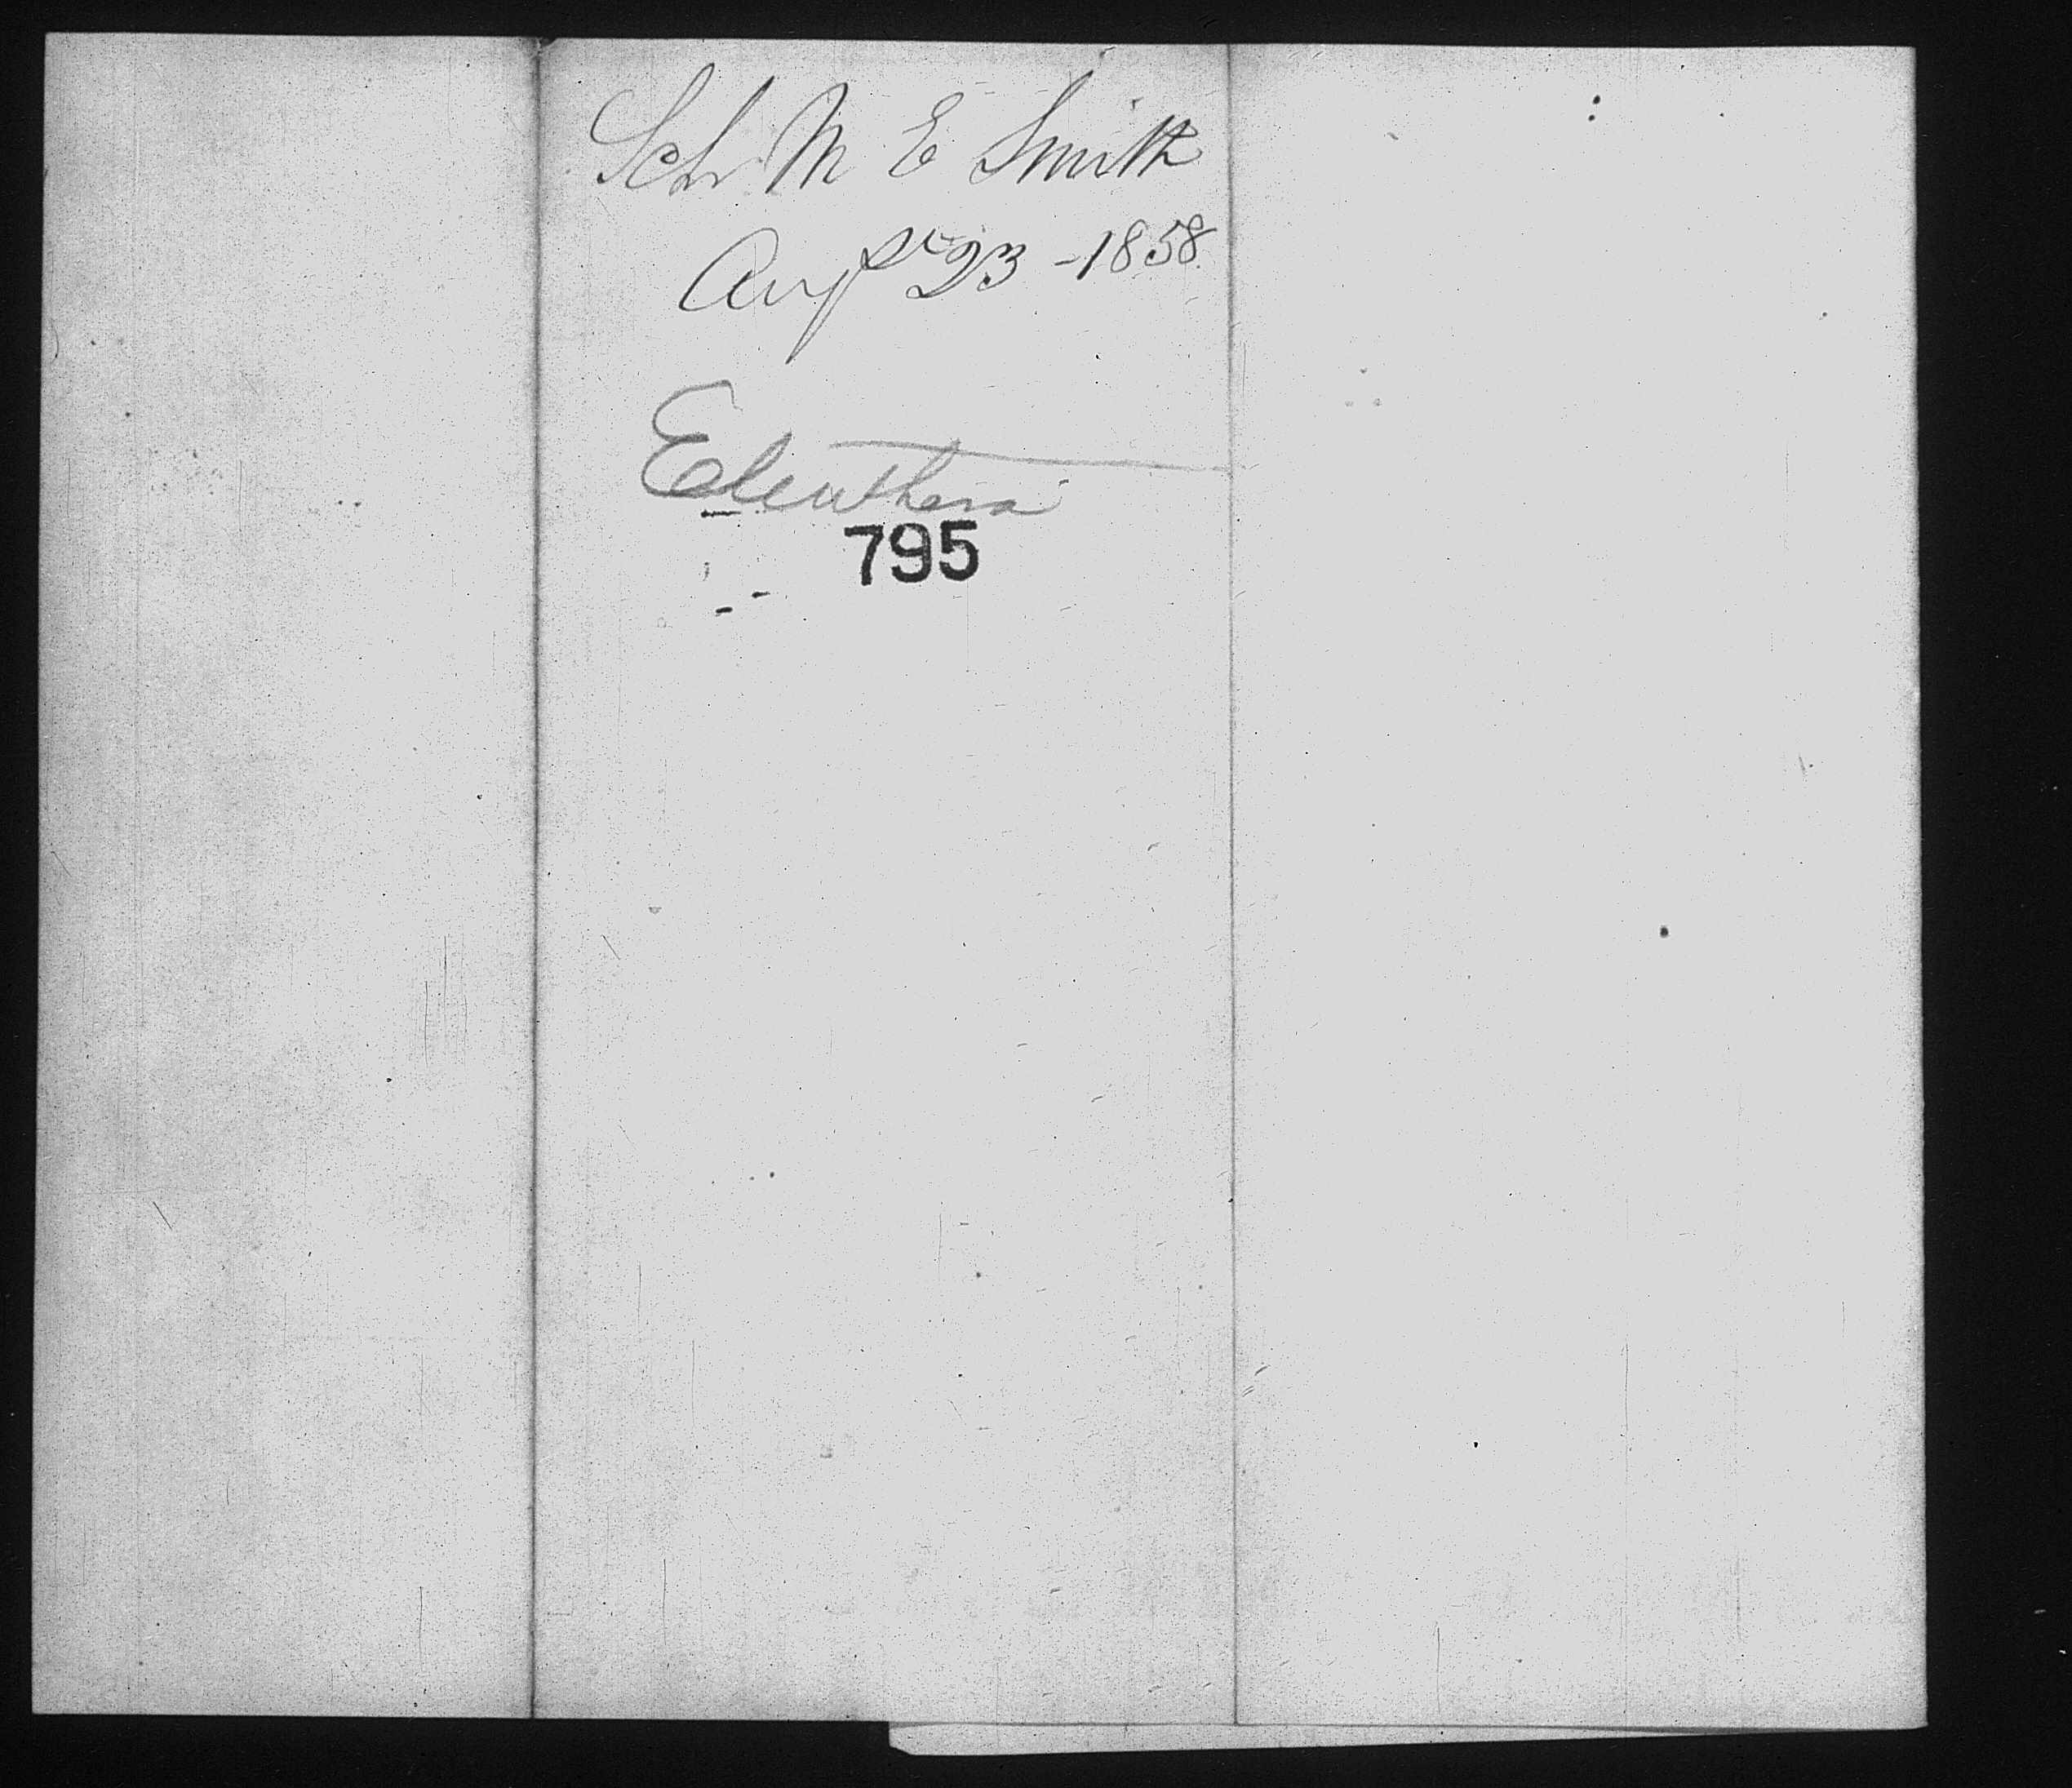 Sch M E Smith
Augst 23 - 1858
Eleuthera
795